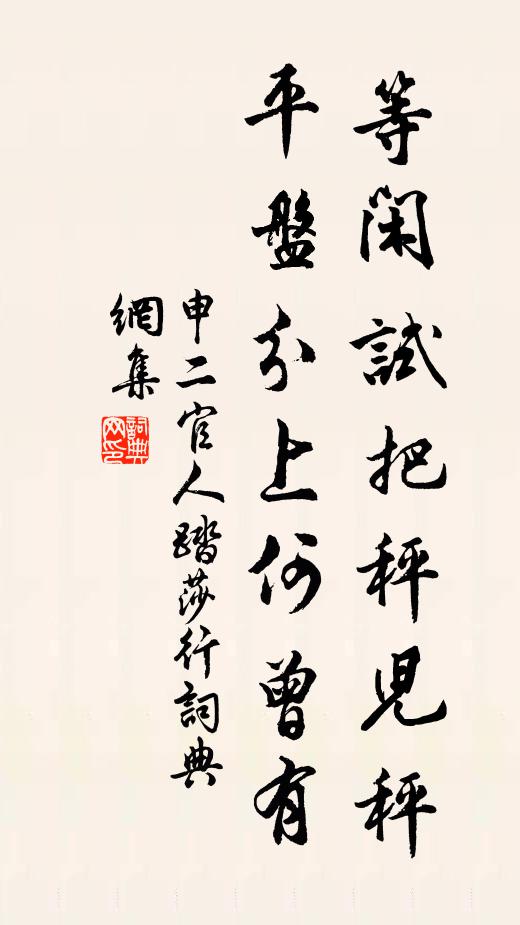 等閑試把秤兒秤
平盤分上何曾有
申二官人踏莎行詞典
網集
詞典
网印